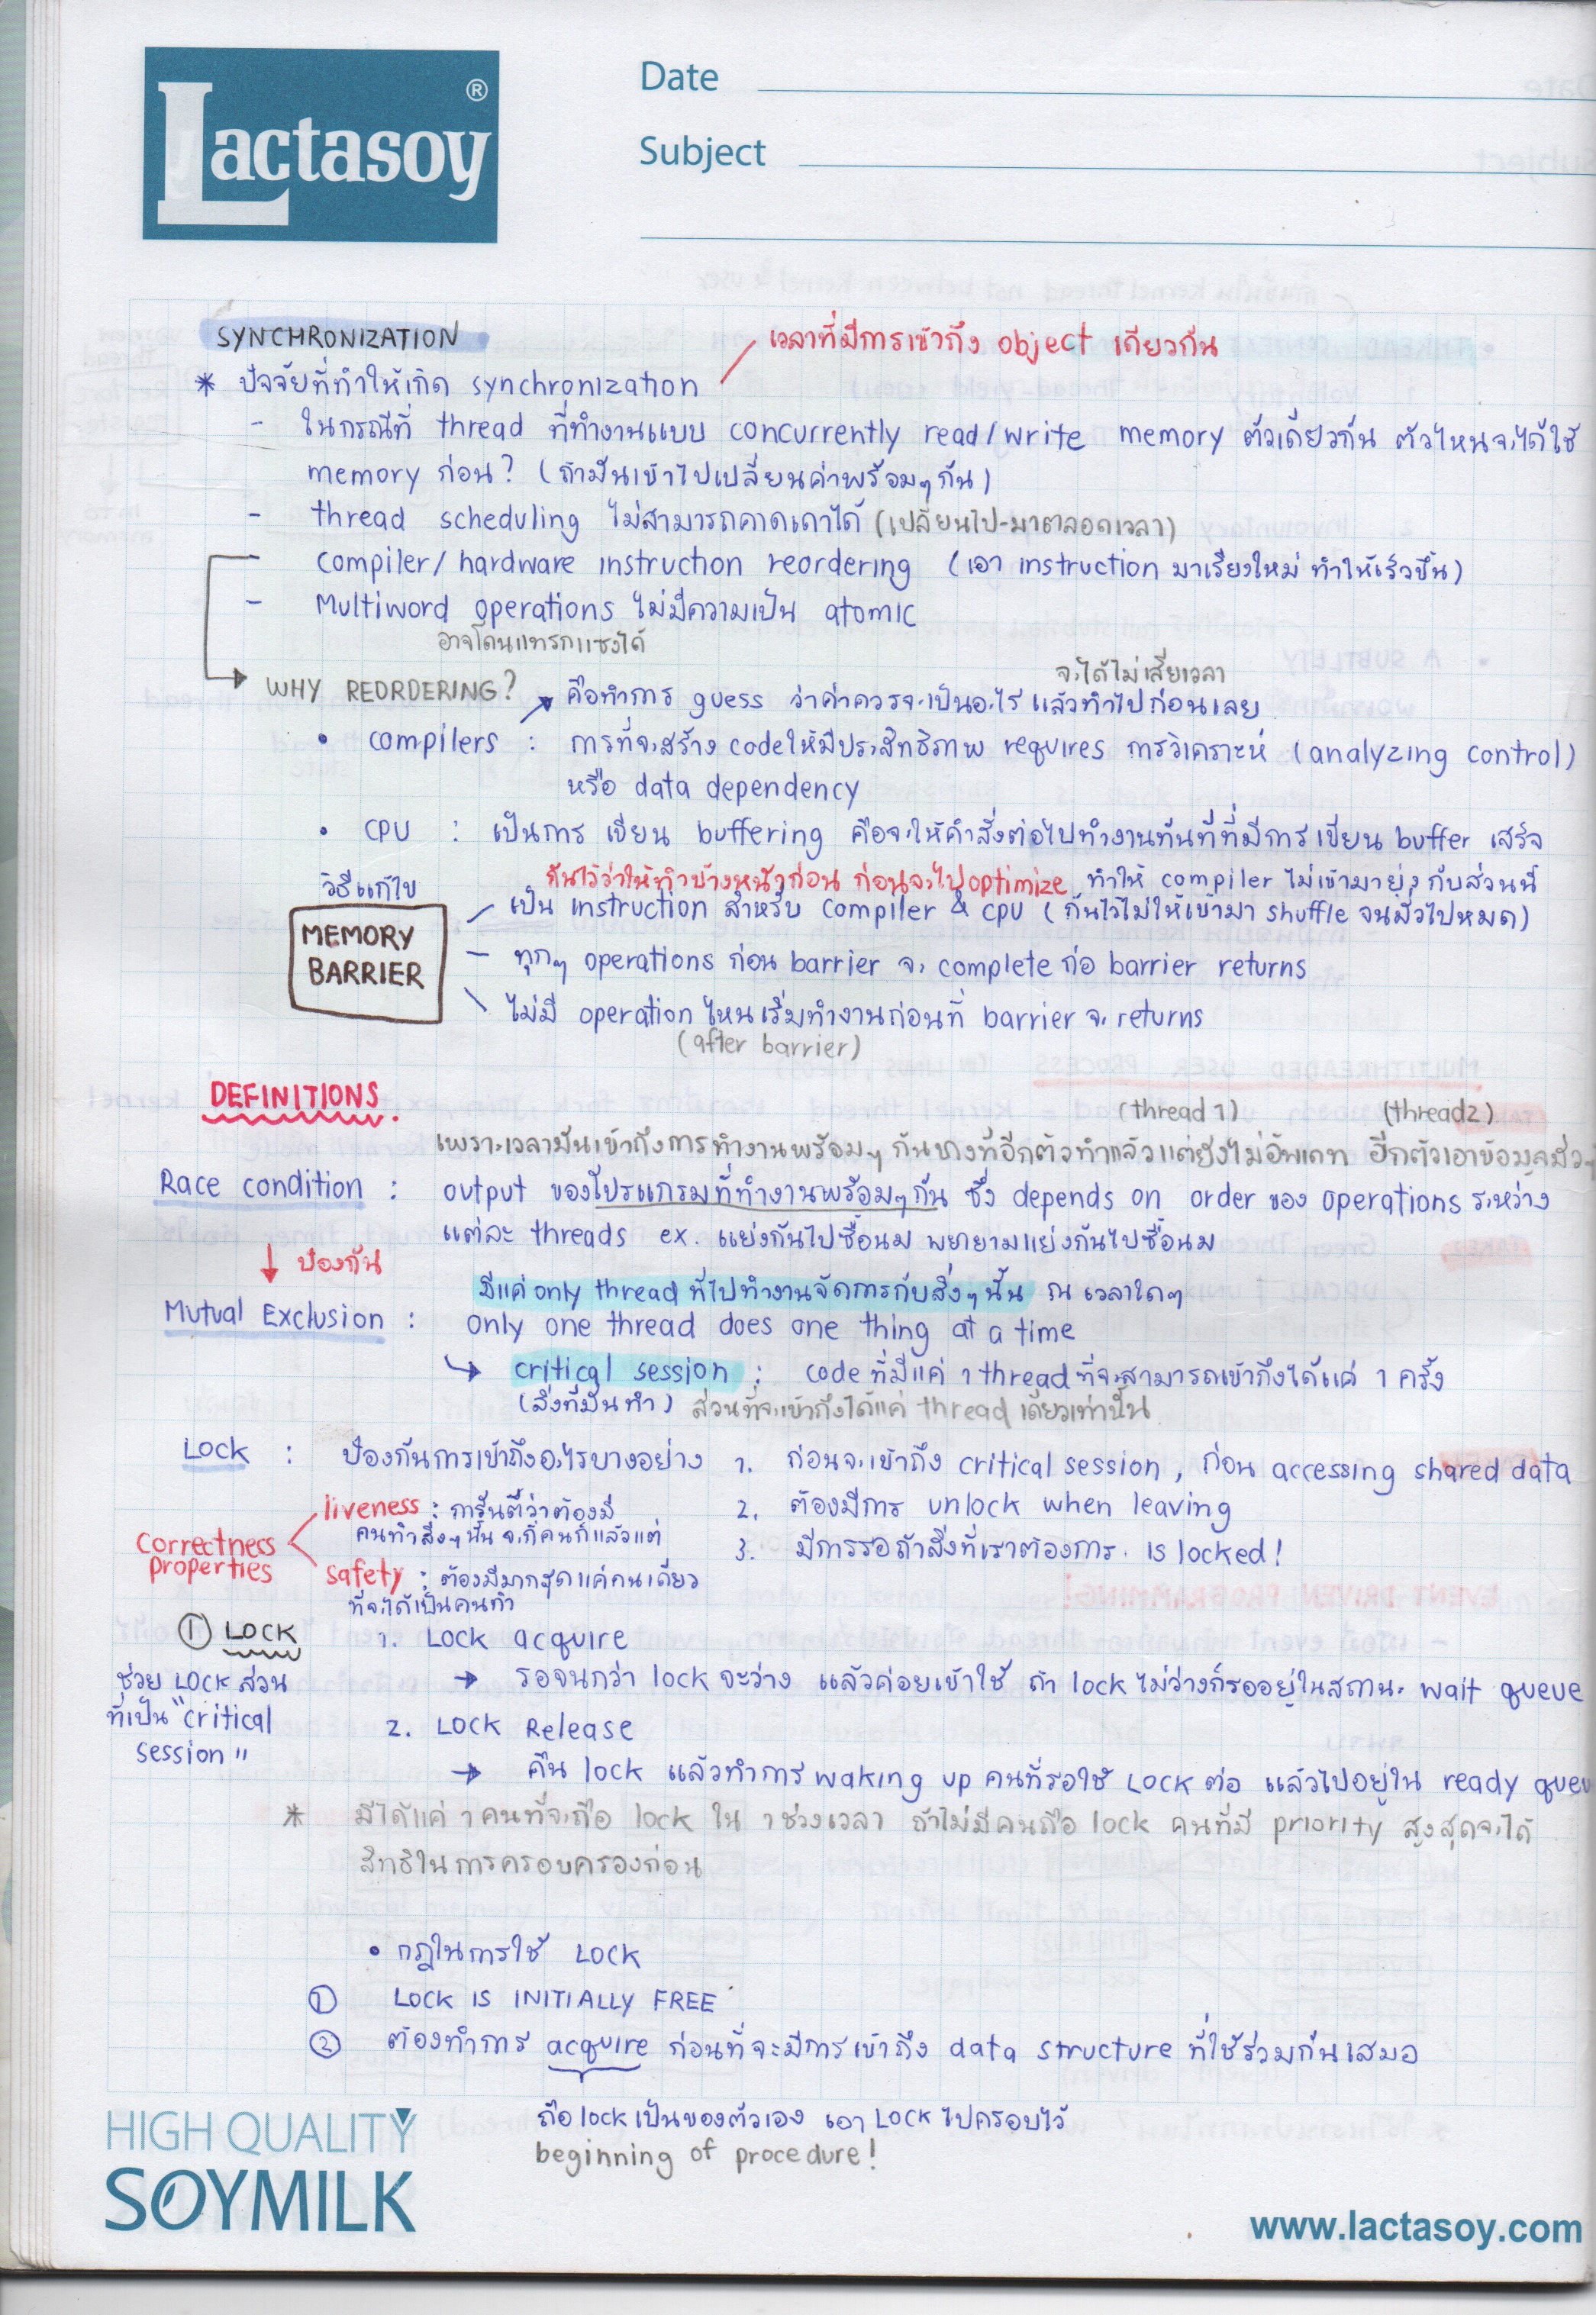 Lactasoy ®
Date
Subject
SYNCHRONIZATION
เวลาที่มีการเข้าถึง object เดียวกัน
* ปัจจัยที่ทำให้เกิด synchronization
- ในกรณีที่ thread ที่ทำงานแบบ concurrently read/write memory ตัวเดียวกัน ตัวไหนจะได้ใช้
memory ก่อน? (ถ้ามันเข้าไปเปลี่ยนค่าพร้อมๆกัน)
- thread scheduling ไม่สามารถคาดเดาได้ (เปลี่ยนไป-มาตลอดเวลา)
- Compiler/hardware instruction reordering (เอา instruction มาเรียงใหม่ ทำให้เร็วขึ้น)
- Multiword operations ไม่มีความเป็น atomic
อาจโดนแทรกแซงได้
จะได้ไม่เสียเวลา
WHY REORDERING?
คือทำการ guess ว่าค่าควรจะเป็นอะไร แล้วทำไปก่อนเลย
• compilers : การที่จะสร้าง code ให้มีประสิทธิภาพ requires การวิเคราะห์ (analyzing control)
หรือ data dependency
• CPU : เป็นการ เขียน buffering คือจะให้คำสั่งต่อไปทำงานทันทีที่มีการ เขียน buffer เสร็จ
วิธีแก้ไข
กันไว้ว่าให้ทำข้างหน้าก่อน ก่อนจะไป optimize ทำให้ compiler ไม่เข้ามายุ่งกับส่วนนี้
MEMORY
BARRIER
เป็น instruction สำหรับ compiler & cpu (กันไว้ไม่ให้เข้ามา shuffle จนมั่วไปหมด)
- ทุกๆ operations ก่อน barrier จะ complete ก่อ barrier returns
ไม่มี operation ไหนเริ่มทำงานก่อนที่ barrier จะ returns
(after barrier)
DEFINITIONS.
(thread 1) (thread2)
เพราะเวลามันเข้าถึงการทำงานพร้อมๆ กันบางทีอีกตัวทำแล้วแต่ยังไม่อัพเดท อีกตัวเอาข้อมูลมั่วๆ
Race condition : output ของโปรแกรมที่ทำงานพร้อมๆกัน ซึ่ง depends on order ของ operations ระหว่าง
แต่ละ threads ex. แย่งกันไปซื้อนม พยายามแย่งกันไปซื้อนม
ป้องกัน
มีแค่ only thread ที่ไปทำงานจัดการกับสิ่งๆนั้น ณ เวลาใดๆ
Mutual Exclusion : only one thread does one thing at a time
critical session : code ที่มีแค่ 1 thread ที่จะสามารถเข้าถึงได้แค่ 1 ครั้ง
(สิ่งที่มันทำ) ส่วนที่จะเข้าถึงได้แค่ thread เดียวเท่านั้น
Lock : ป้องกันการเข้าถึงอะไรบางอย่าง 1. ก่อนจะเข้าถึง critical session, ก่อน accessing shared data
2. ต้องมีการ unlock when leaving
3. มีการรอถ้าสิ่งที่เราต้องการ. is locked!
Correctness
properties
liveness : การันตีว่าต้องมี
คนทำสิ่งๆนั้น จะกี่คนก็แล้วแต่
safety : ต้องมีมากสุดแค่คนเดียว
ที่จะได้เป็นคนทำ
① LOCK
ช่วย LOCK ส่วน
ที่เป็น "critical
session"
1. LOCK acquire
→ รอจนกว่า lock จะว่าง แล้วค่อยเข้าใช้ ถ้า lock ไม่ว่างก็รออยู่ในสถานะ wait queue
2. LOCK Release
→ คืน lock แล้วทำการ waking up คนที่รอใช้ LOCK ต่อ แล้วไปอยู่ใน ready queu
* มีได้แค่ 1 คนที่จะถือ lock ใน 1 ช่วงเวลา ถ้าไม่มีคนถือ lock คนที่มี priority สูงสุดจะได้
สิทธิในการครอบครองก่อน
• กฎในการใช้ LOCK
① LOCK IS INITIALLY FREE
② ต้องทำการ acquire ก่อนที่จะมีการเข้าถึง data structure ที่ใช้ร่วมกันเสมอ
ถือ lock เป็นของตัวเอง เอา LOCK ไปครอบไว้
beginning of procedure!
HIGH QUALITY
SOYMILK
www.lactasoy.com